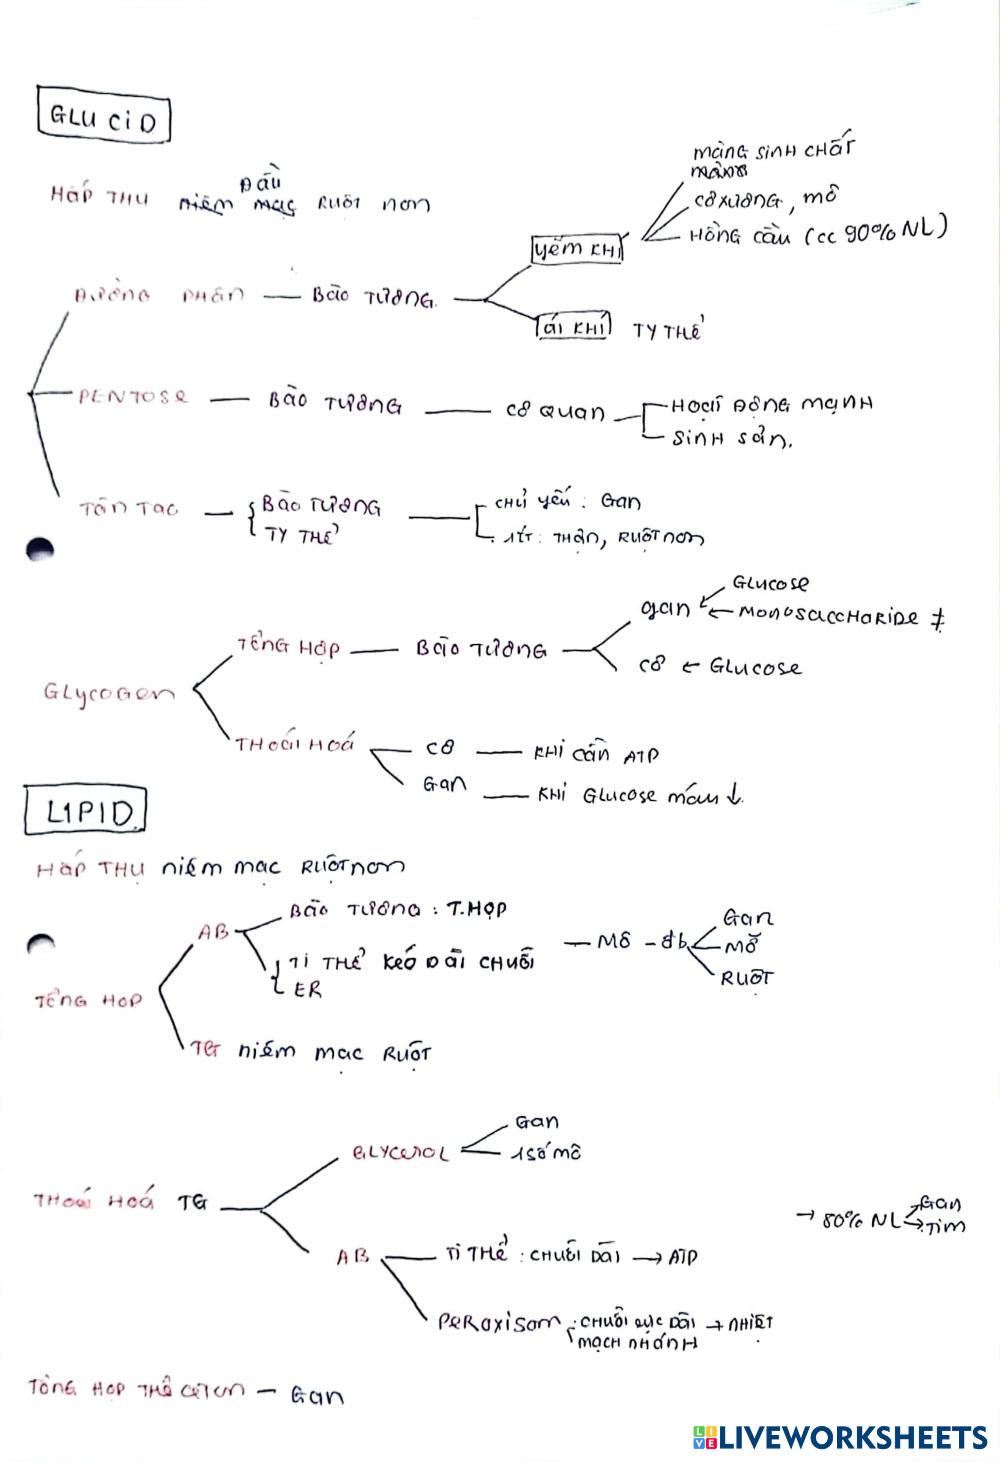 GLUCiD
HấP THU niêm mạc Đầu RUỘT non
màng SinH CHẤT
Cơ XƯơng, mô
Hồng Cầu (cc 90% NL)
yếm KHí
ĐƯờng PHân — Bào TƯơng
ái KHí TY THể
PENTOSE — Bào TƯơng — cơ Quan
HOạT Động mạnH
SinH Sản.
Tân Tạo — Bào TƯơng
TY THể
CHủ yếu : Gan
ít : THận, RUỘT non
Glucose
gan ← MonosaccHaRiDe ≠
Tổng Hợp — Bào Tương
cơ ← Glucose
GLycoGen
THoái Hoá
cơ — KHi Cần ATP
Gan — KHi Glucose máu ↓
LIPID
HấP THụ niêm mạc RUỘT non
Bào Tương : T.HỢP
AB
Ti THể Kéo Dài CHuỗi
ER
— Mô - đb
Gan
Mỡ
RUỘT
Tổng HợP
TG niêm mạc RUỘT
Gan
GLYCEROL
1 Số mô
THoái Hoá TG
→ 80% NL
Gan
Tim
AB
Ti THể : CHuỗi Dài → ATP
PeRoxisom : CHuỗi cực Dài → NHiệT
mạcH nHánH
Tổng Hợp THể ceTon — Gan
LIVEWORKSHEETS